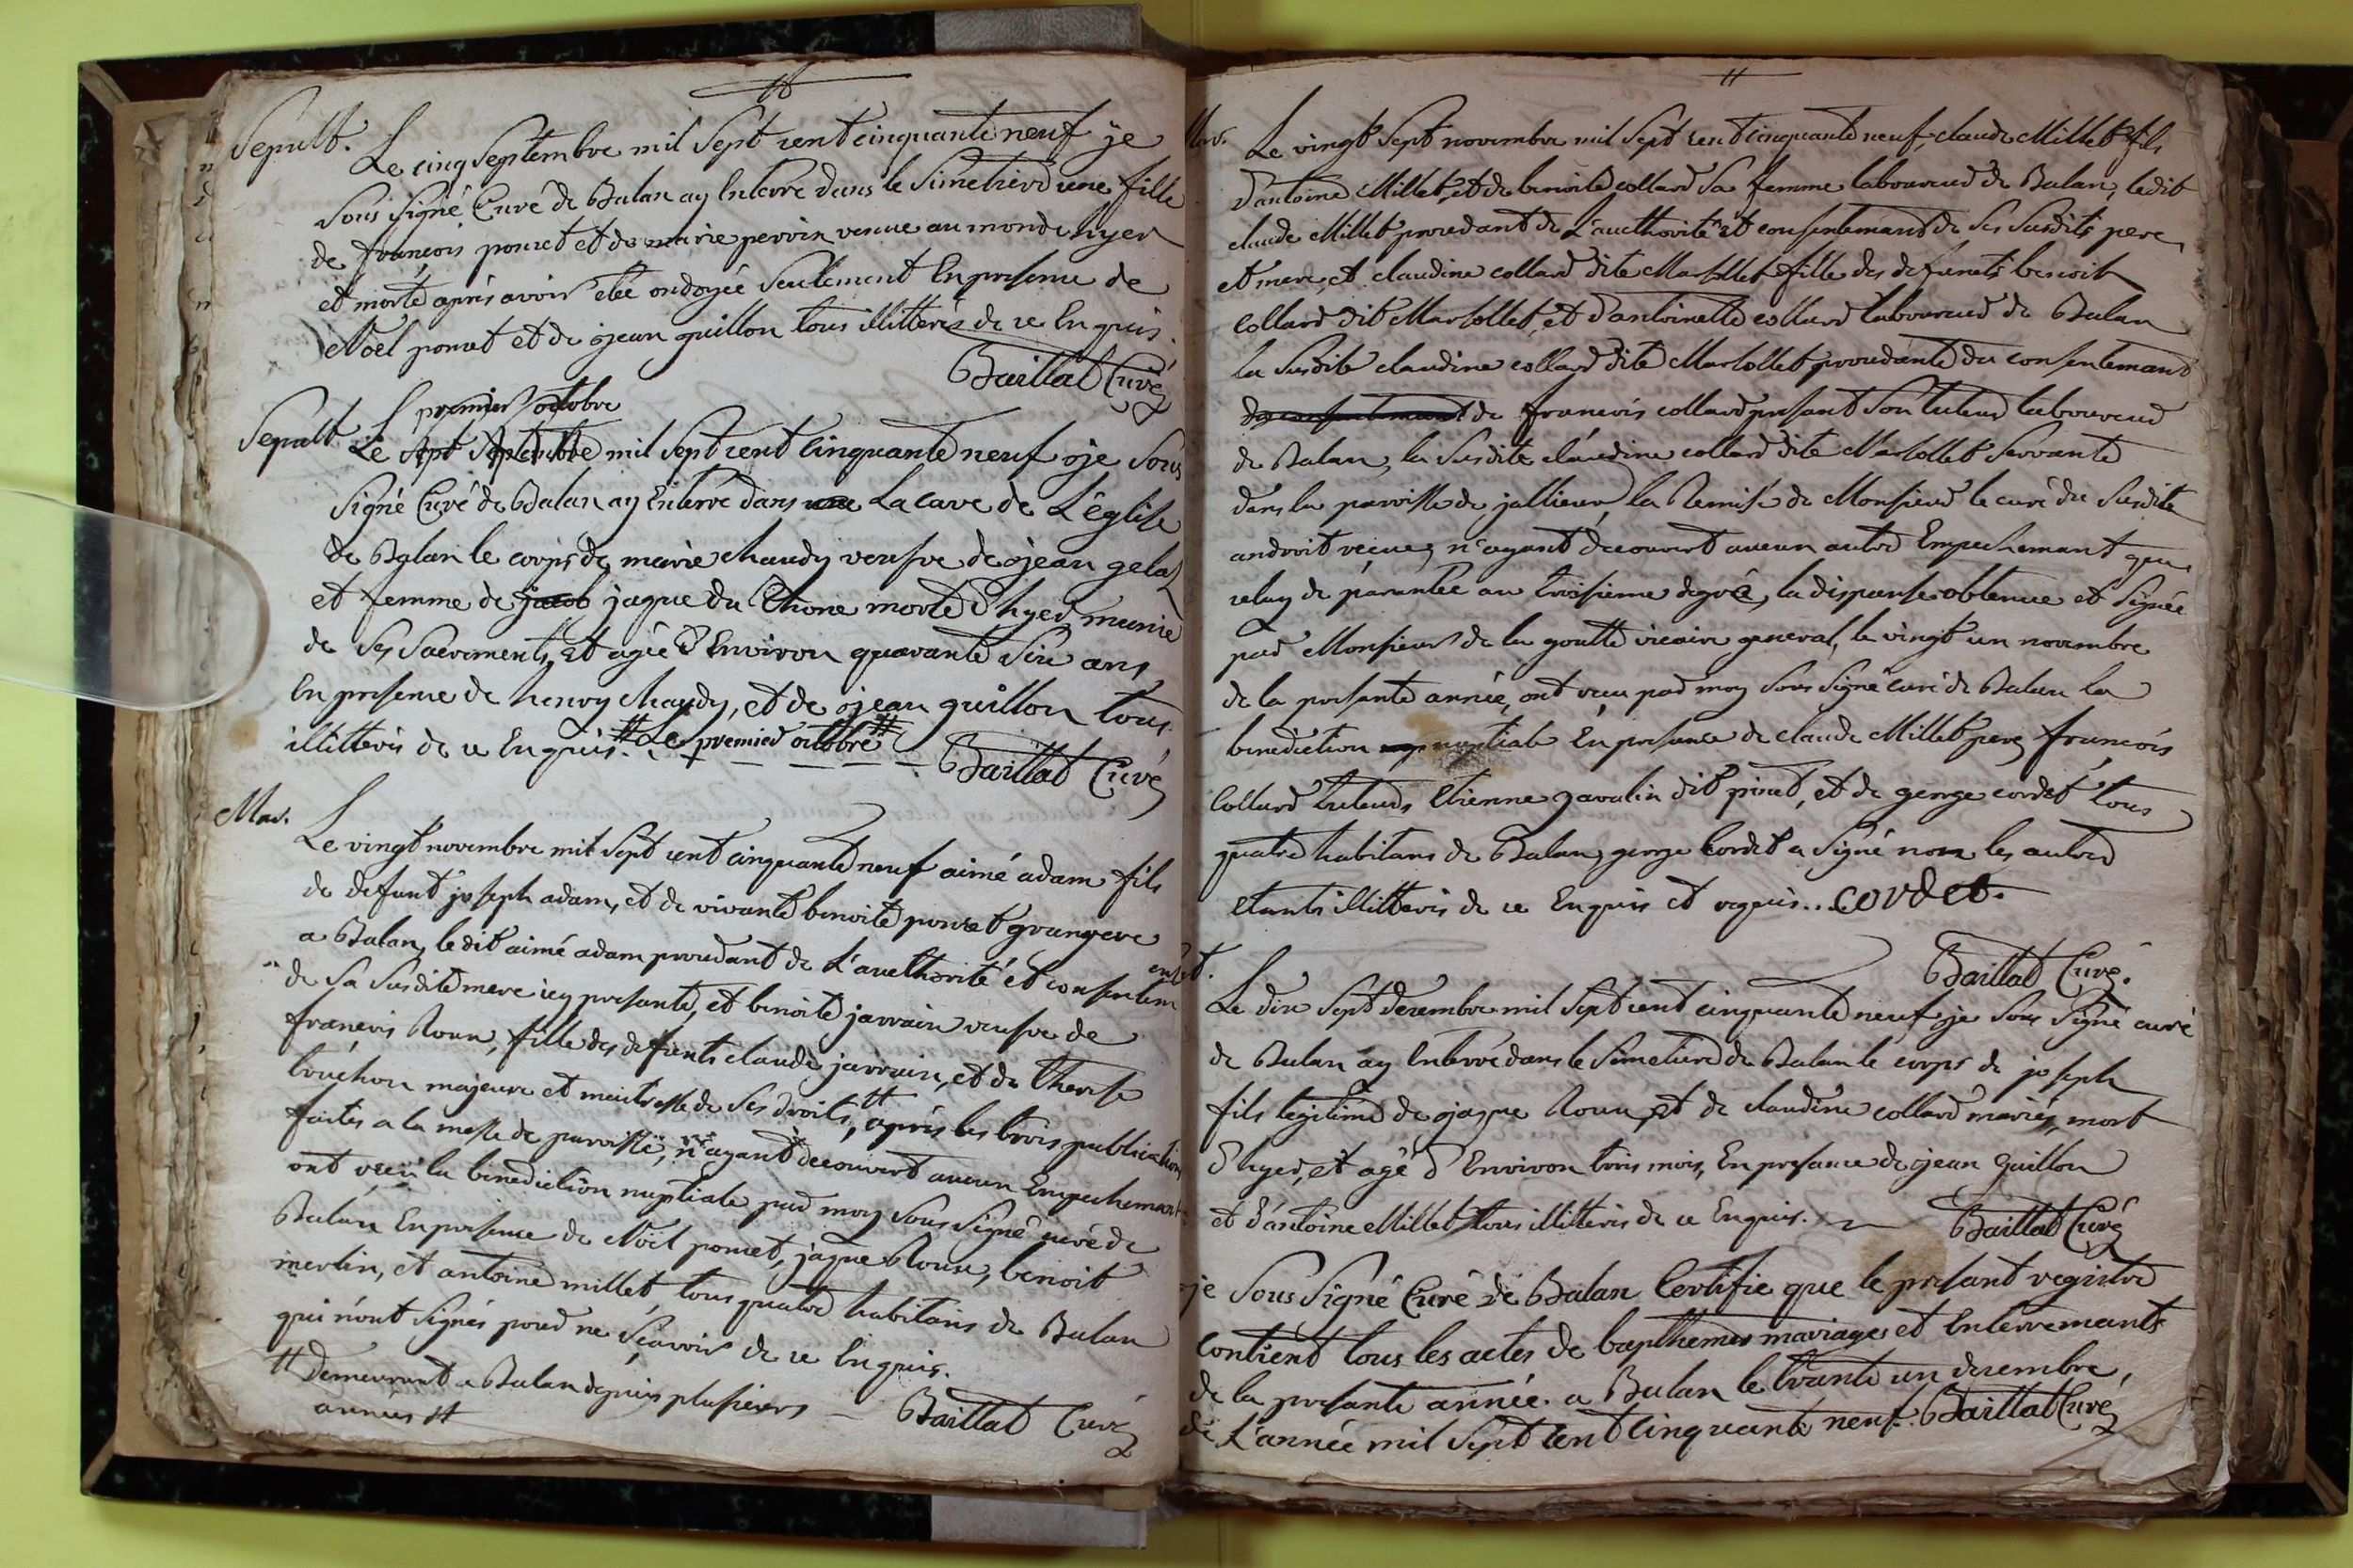 Sepult. Le cinq Septembre mil Sept cent cinquante neuf je
Sous Signé Curé de Balan ay Enterre dans le Simetierd une fille
de francois ponset et de marie perrin venue au monde hyer
et morte aprés avoir eté ondoyée Seulement En presence de
Noel ponset et de jean guillon tous illitterés de ce Enquis.
Baillat Curé
premier octobre
Sepult. Le Sept Septembre mil Sept cent Cinquante neuf je Sous
Signé Curé de Balan ay Enterré dans une La cave de L'église
de Balan le corps de marie chaudy veufve de jean gelas
et femme de jacob jaque du Rhone morte d'hyer, munie
de Ses Sacrements, et agée d'Environ quarante Six ans,
En presence de henry chaudy, et de jean guillon tous
illitteris de ce Enquis. # Le premier octobre #
Baillat Curé
Mar. Le vingt novembre mil Sept cent cinquante neuf aimé adam fils
de defunt joseph adam, et de vivante benoite ponset grangere
a Balan, ledit aimé adam procedant de L'aucthorité et consentement
de Sa Susdite mere icy presante, et benoite jarrain veufve de
francois Roux, fille des defunts claude jarrain, et de Therese
bouchon majeure et maitresse de Ses droits, # aprés les trois publications
faites a la messe de paroisse, n'ayant decouvert aucun Empechemant
ont reçu la benediction nuptiale par moy Sous Signé curé de
Balan En presence de Noël ponset, jaque Roux, benoit
merlin, et antoine millet tous quatre habitans de Balan
qui n'ont Signés pour ne Sçavoir de ce Enquis.
# demeurant a Balan depuis plusieurs
années #
Baillat Curé
Mar. Le vingt Sept novembre mil Sept cent cinquante neuf, claude Millet fils
d'antoine Millet, et de benoite collard Sa femme laboureurs de Balan, ledit
claude Millet procedant de L'aucthorité et consentemant de Ses Susdits pere
et mere, et claudine collard dite Marsollet fille des defunts benoit
Collard dit Marsollet, et d'antoinette collard laboureurs de Balan
la Susdite claudine collard dite Marsollet procedante du consentemant
du consentemant de francois collard presant Son tuteur laboureur
de Balan, la Susdite claudine collard dite Marsollet Servante
dans la paroisse de jallieux, la Remise de Monsieur le curé du Susdite
androit reçue, n'ayant decouvert aucun autre Empechemant que
celuy de parantée au troisieme degré, la dispanse obtenue et Signée
par Monsieur de la goutte vicaire general, le vingt un novembre
de la presante année, ont reçu par moy Sous Signé curé de Balan la
benediction nuptiale En presance de claude Millet pere, francois
Collard tuteur, Etienne gavalin dit pinet, et de george cordet tous
quatre habitans de Balan, george Cordet a Signé non les autres
etants illitteris de ce Enquis et requis... cordet.
Baillat Curé.
Le dix Sept decembre mil Sept cent cinquante neuf je Sous Signé curé
de Balan ay Enterré dans le Simetiere de Balan le corps de joseph
fils legitime de jaque Roux, et de claudine collard mariés, mort
d'hyer, et agé d'Environ trois mois, En presance de jean Guillon
et d'antoine Millet tous illitteris de ce Enquis.
Baillat Curé
je Sous Signé Curé de Balan Certifie que le presant registre
Contient tous les actes de bapthemes mariages et Enterremants
de la presante année. a Balan le trante un decembre,
de L'année mil Sept Cent Cinquante neuf. Baillat Curé